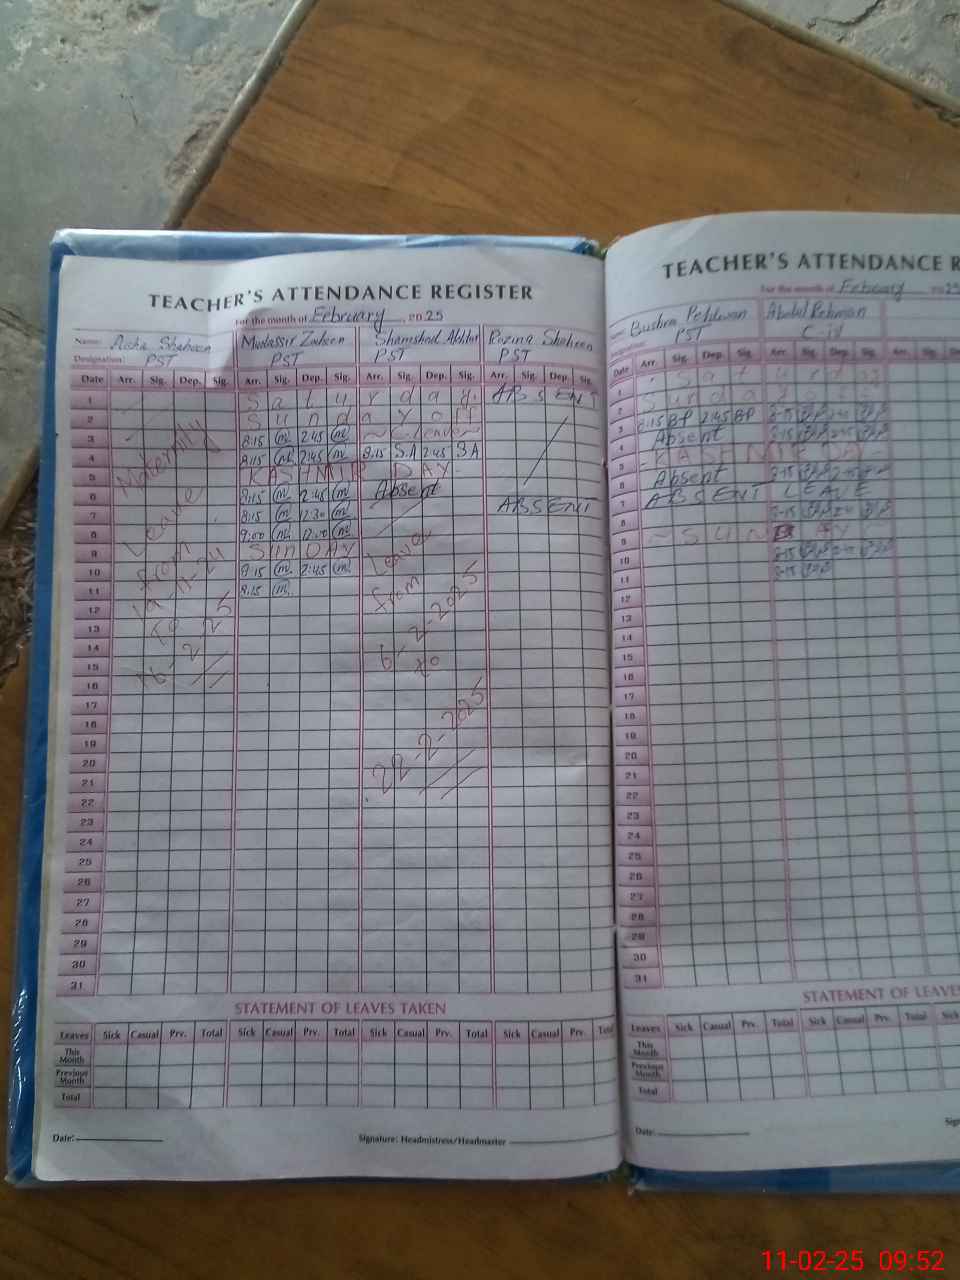 TEACHER'S ATTENDANCE REGISTER
For the month of February 2025
Name: Aisha Shaheen Mudassir Zaheen Shamshad Akhtar Rozina Shaheen
Designation: PST PST PST PST
Date Arr. Sig. Dep. Sig. Arr. Sig. Dep. Sig. Arr. Sig. Dep. Sig. Arr. Sig. Dep. Sig.
1 Saturday. ABSENT
2 Sunday off
3 8:15 2:45 C-Leave
4 8:15 2:45 8:15 S.A 2:45 SA
5 KASHMIR DAY
6 8:15 2:45 Absent
7 8:15 12:30 ABSENT
8 9:00 12:00
9 SUNDAY
10 8:15 2:45
11 8:15
12
13
14
15
16
17
18
19
20
21
22
23
24
25
26
27
28
29
30
31
Maternity
Leave
from
19-11-24
To
16-2-25
Leave
from
6-2-2025
to
22-2-2025
STATEMENT OF LEAVES TAKEN
Leaves Sick Casual Prv. Total Sick Casual Prv. Total Sick Casual Prv. Total Sick Casual Prv. Total
This Month
Previous Month
Total
Date: Signature: Headmistress/Headmaster
TEACHER'S ATTENDANCE R
For the month of February 2025
Bushra Pehlwan Abdul Rehman
PST C-iv
Date Arr. Sig. Dep. Sig. Arr. Sig. Dep. Sig. Arr. Sig.
1 Saturday
2 Sunday off
3 8:15 BP 2:45 BP 8-15
4 Absent 8-15
5 KASHMIR DAY
6 Absent 8-15
7 ABSENT LEAVE
8 8-15
9 SUNDAY
10 8-15
11 8-15
12
13
14
15
16
17
18
19
20
21
22
23
24
25
26
27
28
29
30
31
STATEMENT OF LEAVE
Leaves Sick Casual Prv. Total Sick Casual Prv. Total Sick
This Month
Previous Month
Total
Date: Sig
11-02-25 09:52